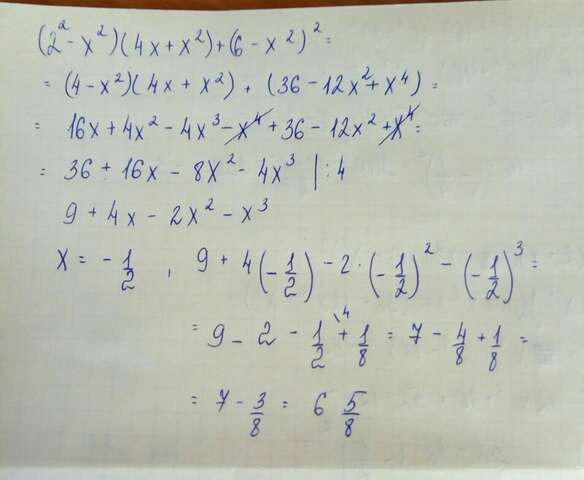 (2² - x²)(4x + x²) + (6 - x²)² =
= (4 - x²)(4x + x²) + (36 - 12x² + x⁴) =
= 16x + 4x² - 4x³ - x⁴ + 36 - 12x² + x⁴ =
= 36 + 16x - 8x² - 4x³ | : 4
9 + 4x - 2x² - x³
x = - 1/2 , 9 + 4(-1/2) - 2 · (-1/2)² - (-1/2)³ =
= 9 - 2 - 1/2 \4 + 1/8 = 7 - 4/8 + 1/8 =
= 7 - 3/8 = 6 5/8